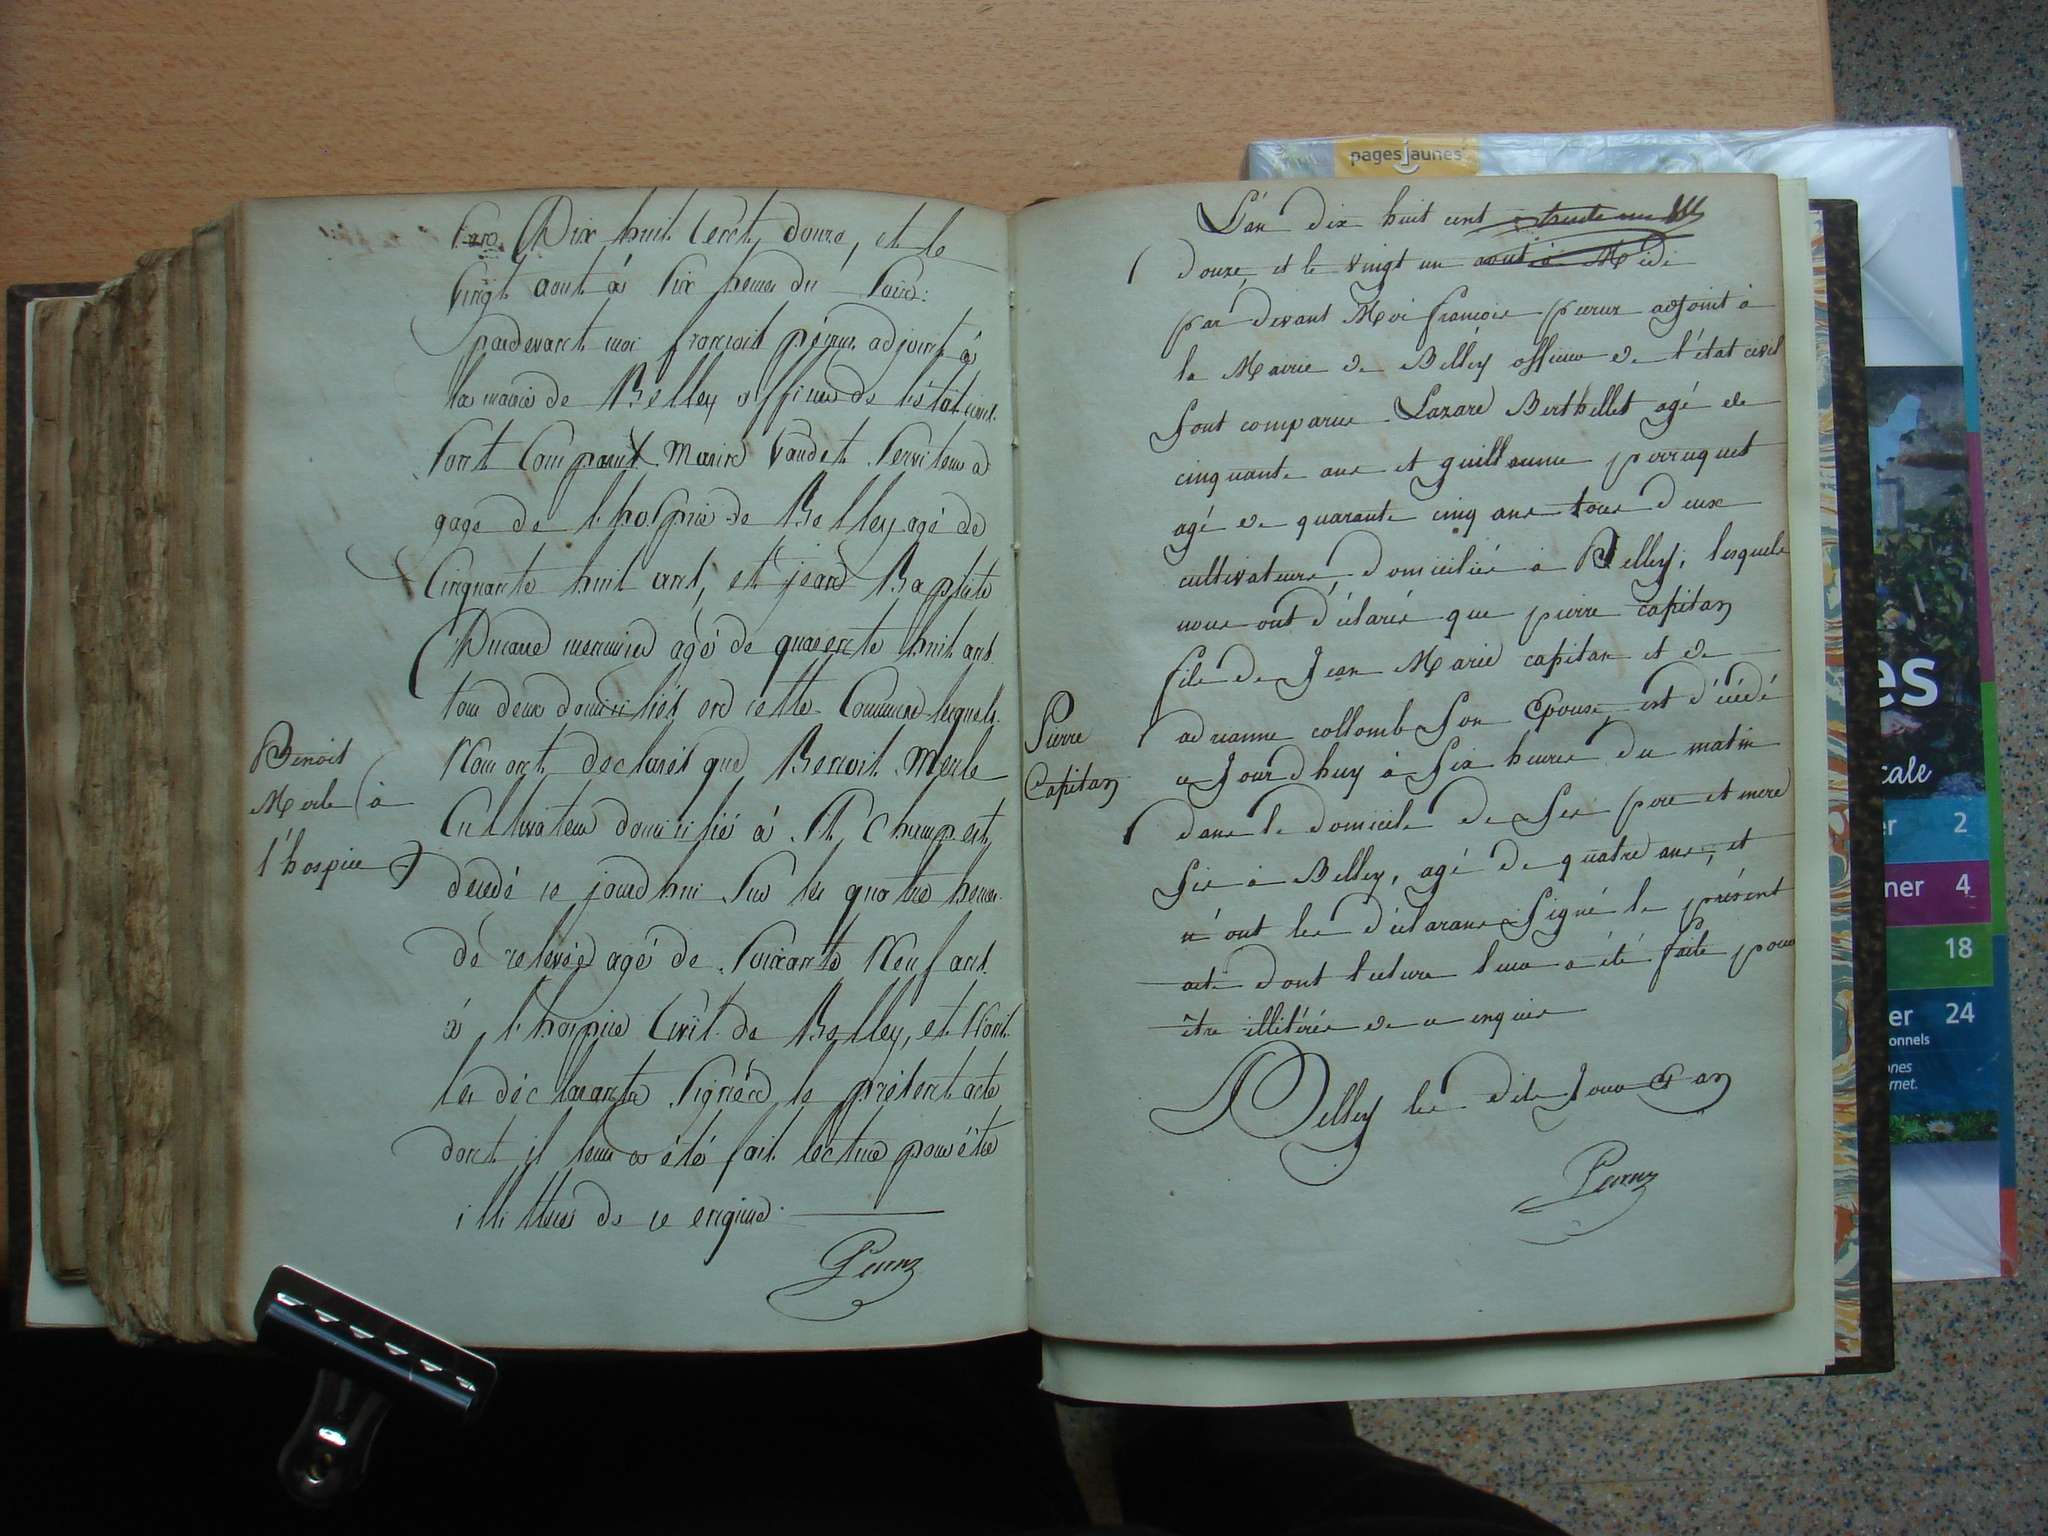 L'an Dix huit Cent douze, et le
Vingt aout à Six heures du Soir:
pardevant moi françois péruz adjoint à
la mairie de Belley officier de l'état civil.
Sont Comparu Marin Vaudet Serviteur à
gage de l'hospice de Belley agé de
Cinquante huit ans, et jean Baptiste
menuisier agé de quarente huit ans
tous deux domiciliés en cette Commune lesquels
Nous ont declarés que Benoit Merle
Cultivateur domicilié à St Champ est
decedé ce jourdhui Sur les quatre heures
de relevée agé de Soixante Neuf ans
à l'hospice Civil de Belley, et N'ont
les déclarants Signéer le présent acte
dont il leur a été fait lecture pour être
illitteré de ce enquis.
Benoit
Merle à
l'hospice
L'an dix huit cent
douze, et le vingt un aout à Midi
par devant Moi françois adjoint à
la Mairie de Belley officier de l'état civil
Sont comparus Lazare Berthellet agé de
cinquante ans et guillaume perruquet
agé de quarante cinq ans tous deux
cultivateurs, domiciliés à Belley, lesquels
nous ont déclarés que pierre capitan
fils de Jean Marie capitan et de
adrianne collomb Son Epouse, est décédé
ce Jourd'huy à Six heures du matin
dans le domicile de Ses pere et mere
Sis à Belley, agé de quatre ans, et
n'ont les déclarans Signé le présent
acte dont lecture leur a été faite pour
être illitérés de ce enquis
Pierre
Capitan
A Belley les dits Jour et an
pagesjaunes
es
cale
er 2
ner 4
18
er 24
onnels
nes
rnet.